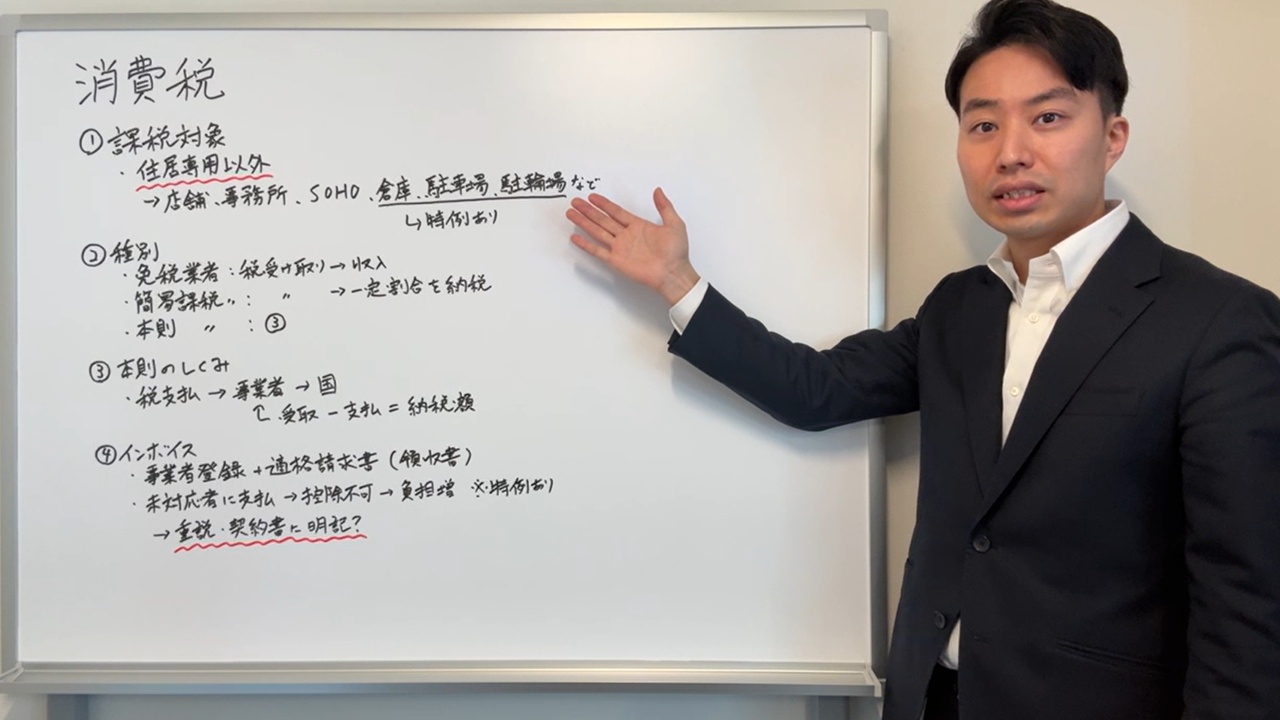 消費税
①課税対象
・住居専用以外
→店舗、事務所、SOHO、倉庫、駐車場、駐輪場など
↳特例あり
②種別
・免税業者：税受け取り→収入
・簡易課税〃：〃→一定割合を納税
・本則〃：③
③本則のしくみ
・税支払→事業者→国
↑受取－支払＝納税額
④インボイス
・事業者登録＋適格請求書(領収書)
・未対応者に支払→控除不可→負担増 ※特例あり
→重説・契約書に明記？